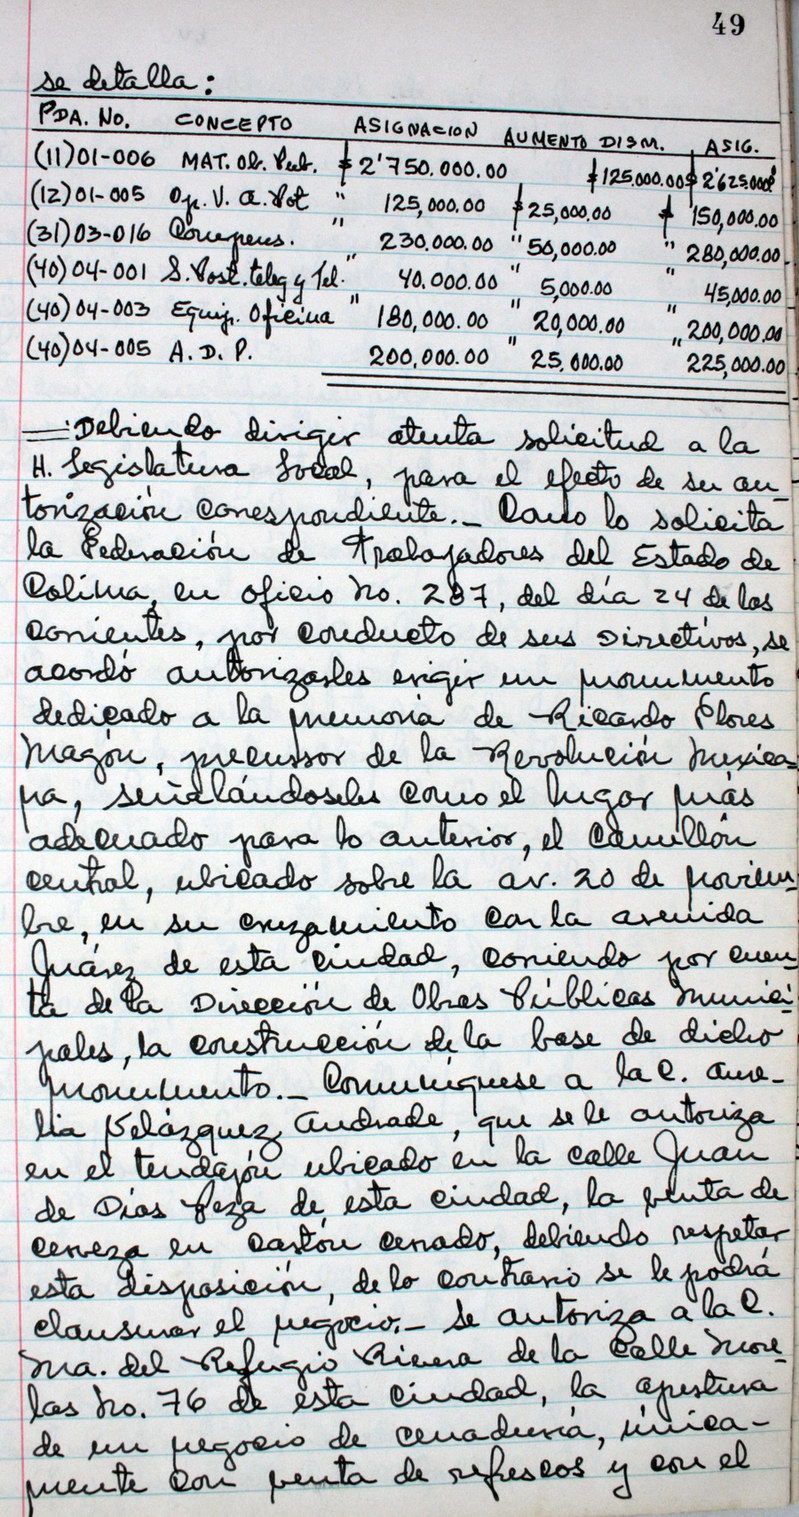 49
se detalla:
PDA. No. CONCEPTO ASIGNACION AUMENTO DISM. ASIG.
(11)01-006 MAT. Ob. Pub. $ 2'750.000.00 $125.000.00 $ 2'625.000
(12)01-005 Op. V. A. Pot " 125,000.00 $25,000.00 $ 150,000.00
(31)03-016 Compens. " 230.000.00 " 50,000.00 " 280,000.00
(40)04-001 S. Post. teleg y Tel. " 40.000.00 " 5,000.00 45,000.00
(40)04-003 Equip. Oficina " 180,000.00 " 20,000.00 " 200,000.00
(40)04-005 A. D. P. 200,000.00 " 25,000.00 225,000.00
=Debiendo dirigir atenta solicitud a la
H. Legislatura Local, para el efecto de su au-
torización correspondiente._ Como lo solicita
la Federación de Trabajadores del Estado de
Colima, en oficio No. 287, del día 24 de los
corrientes, por conducto de sus Directivos, se
acordó autorizarles erigir un monumento
dedicado a la memoria de Ricardo Flores
Magón, precursor de la Revolución Mexica-
na, señalándoseles como el lugar más
adecuado para lo anterior, el camellón
central, ubicado sobre la av. 20 de noviem-
bre, en su cruzamiento con la avenida
Juárez de esta ciudad, corriendo por cuen-
ta de la Dirección de Obras Públicas Munici-
pales, la construcción de la base de dicho
monumento._ Comuníquese a la C. Ame-
lia Velázquez Andrade, que se le autoriza
en el tendajón ubicado en la calle Juan
de Dios Peza de esta ciudad, la venta de
cerveza en cartón cerrado, debiendo respetar
esta disposición, de lo contrario se le podrá
clausurar el negocio._ Se autoriza a la C.
Ma. del Refugio Rivera de la Calle More-
los No. 76 de esta ciudad, la apertura
de un negocio de cenaduría, única-
mente con venta de refrescos y con el